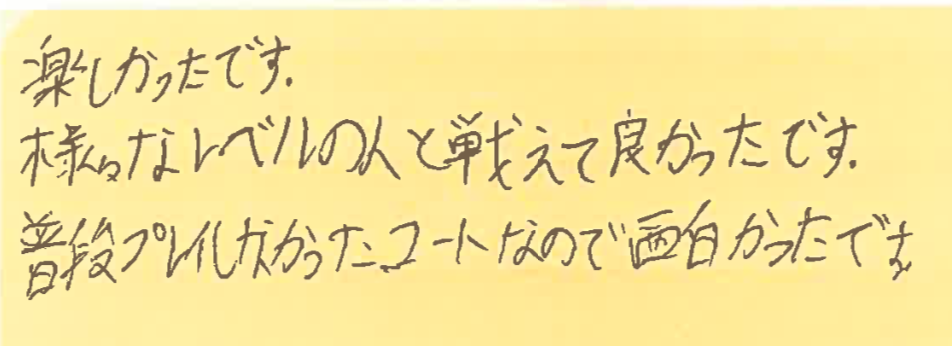 楽しかったです.
様々なレベルの人と戦えて良かったです.
普段プレイしなかったコートなので面白かったです